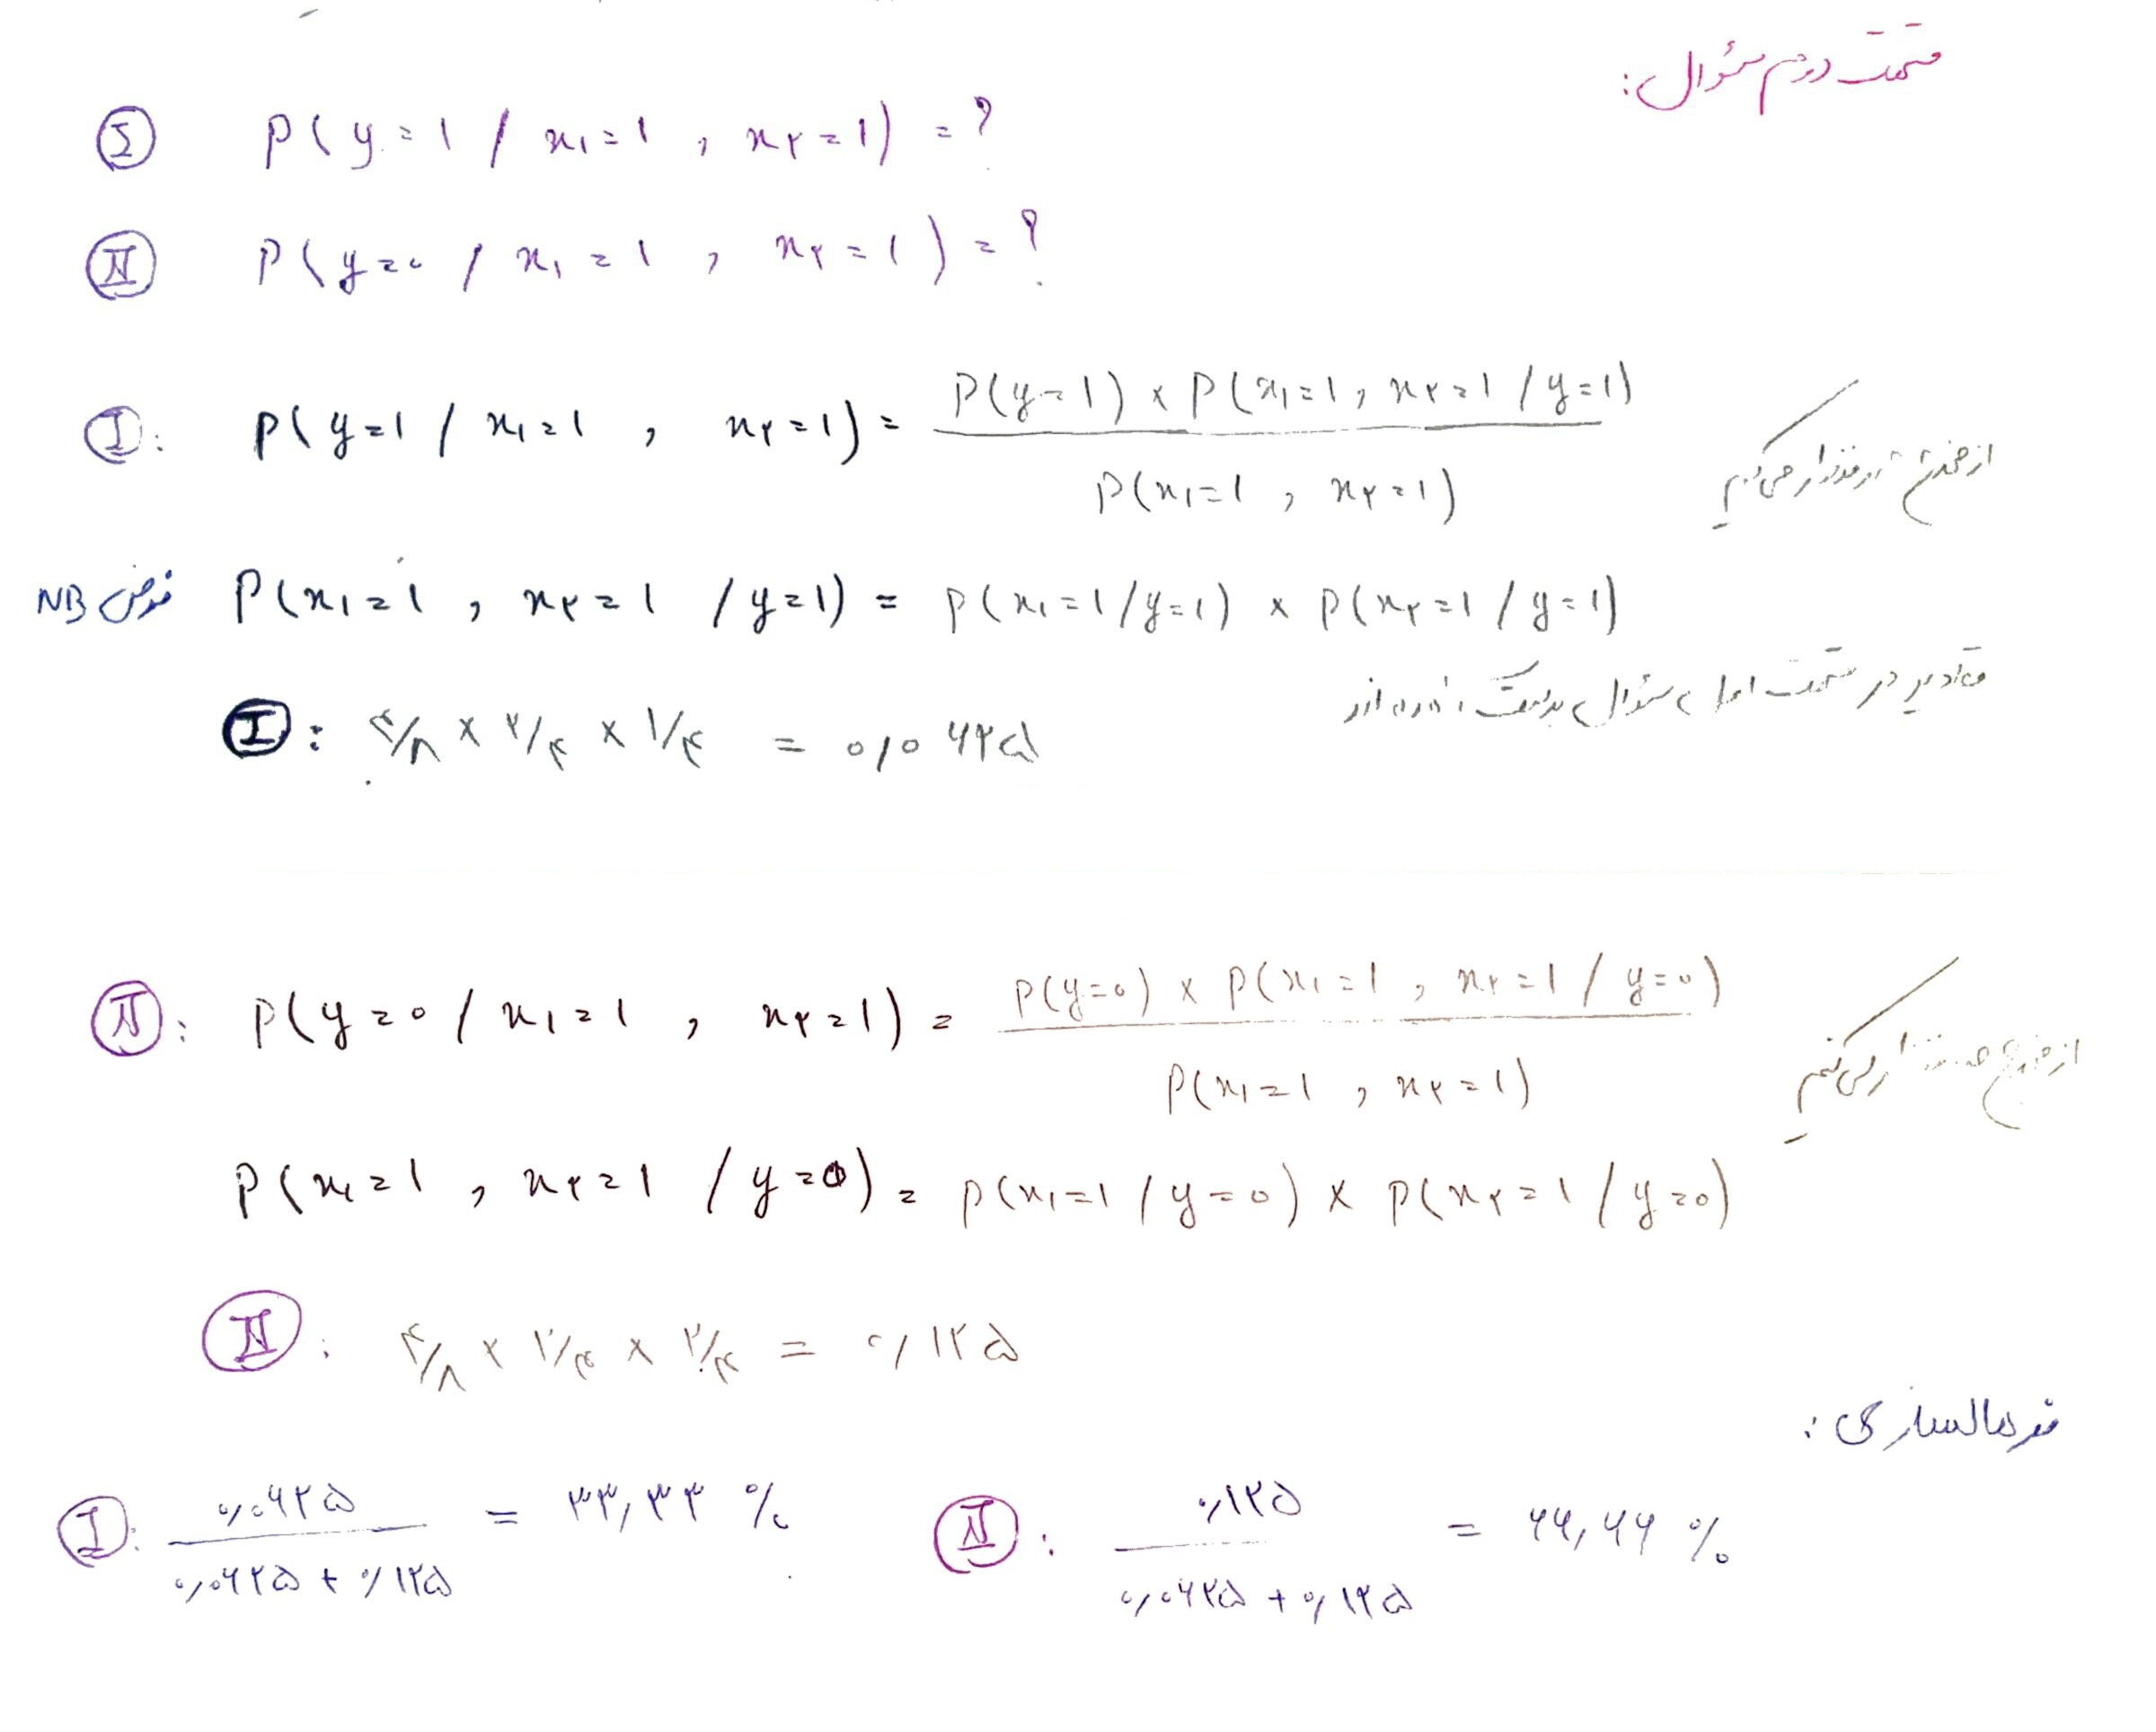 قسمت دوم سؤال:
Ⓘ P(y=1 / x₁=1 , x۲=1) = ?
Ⓘ︎Ⓘ P(y=0 / x₁=1 , x۲=1) = ?
Ⓘ: P(y=1 / x₁=1 , x۲=1) = P(y=1) × P(x₁=1 , x۲=1 / y=1)
P(x₁=1 , x۲=1)
از مخرج صرفنظر می‌کنیم
فرض NB P(x₁=1 , x۲=1 / y=1) = P(x₁=1 / y=1) × P(x۲=1 / y=1)
مقادیر در قسمت اول سؤال بدست آورده‌اند
Ⓘ: ۴/۸ × ۲/۴ × ۱/۴ = ۰/۰۶۲۵
II: P(y=0 / x₁=1 , x۲=1) = P(y=0) × P(x₁=1 , x۲=1 / y=0)
P(x₁=1 , x۲=1)
از مخرج صرفنظر می‌کنیم
P(x₁=1 , x۲=1 / y=0) = P(x₁=1 / y=0) × P(x۲=1 / y=0)
II: ۴/۸ × ۲/۴ × ۲/۴ = ۰/۱۲۵
نرمالسازی:
I: ۰/۰۶۲۵ = ۳۳,۳۳ % II: ۰/۱۲۵ = ۶۶,۶۶ %
۰/۰۶۲۵ + ۰/۱۲۵ ۰/۰۶۲۵ + ۰/۱۲۵